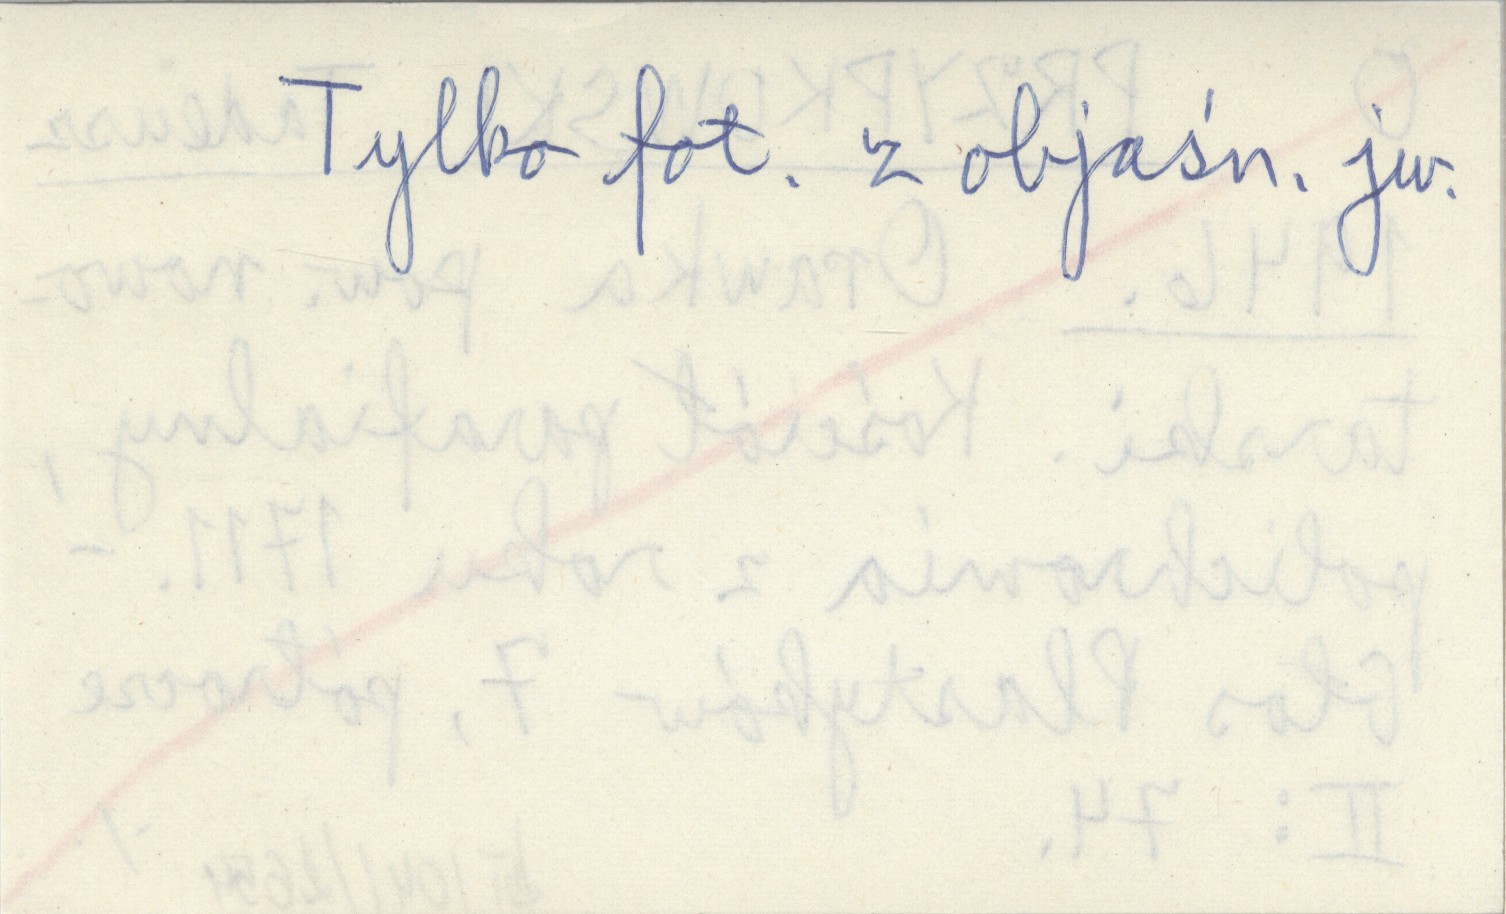 Tylko fot. z objaśn. jw.